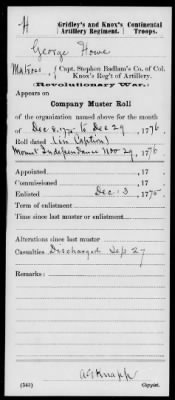 H
Gridley's and Knox's Artillery Regiment.
Continental Troops.
George Howe
Matross,
Capt. Stephen Badlam's Co. of Col. Knox's Reg't of Artillery.
Revolutionary War.
Appears on
Company Muster Roll
of the organization named above for the month
of Dec 8, 75 to Dec 29, 1776
Roll dated (See Caption)
Mount Independence Nov 29, 1776
Appointed 17
Commissioned 17
Enlisted Dec 3, 1775.
Term of enlistment
Time since last muster or enlistment
Alterations since last muster
Casualties Discharged Sep 27
Remarks:
Knapp
(543)
Copyist.